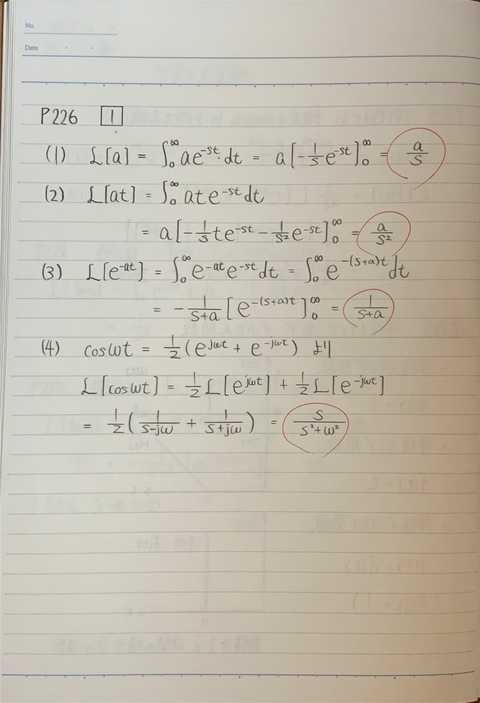 No.
Date
P226 1
(1) ℒ[a] = ∫₀^∞ ae^{-st} dt = a[-1/s e^{-st}]₀^∞ = a/s
(2) ℒ[at] = ∫₀^∞ at e^{-st} dt
= a[-1/s te^{-st} - 1/s² e^{-st}]₀^∞ = a/s²
(3) ℒ[e^{-at}] = ∫₀^∞ e^{-at} e^{-st} dt = ∫₀^∞ e^{-(s+a)t} dt
= -1/(s+a) [e^{-(s+a)t}]₀^∞ = 1/(s+a)
(4) cosωt = 1/2(e^{jωt} + e^{-jωt}) より
ℒ[cosωt] = 1/2 ℒ[e^{jωt}] + 1/2 ℒ[e^{-jωt}]
= 1/2(1/(s-jω) + 1/(s+jω)) = s/(s²+ω²)